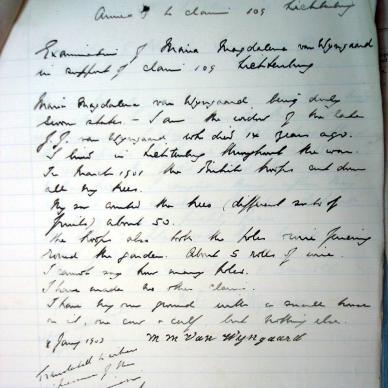 Annex to claim 109 Lichtenburg
Examination of Maria Magdalena van Wyngaard
in support of claim 109 Lichtenburg
Maria Magdalena van Wyngaard being duly
sworn states - I am the widow of the late
J.J. van Wyngaard who died 14 years ago.
I lived in Lichtenburg throughout the war.
In March 1901 the British troops cut down
all my trees.
My son counted the trees (different sorts of
fruits) about 50.
The troops also took the poles wire fencing
round the garden. About 5 rolls of wire.
I cannot say how many poles.
I have made no other claim.
I have my own ground with a small house
on it, one cow & calf but nothing else.
8 Jany 1903 M M Van Wyngaard